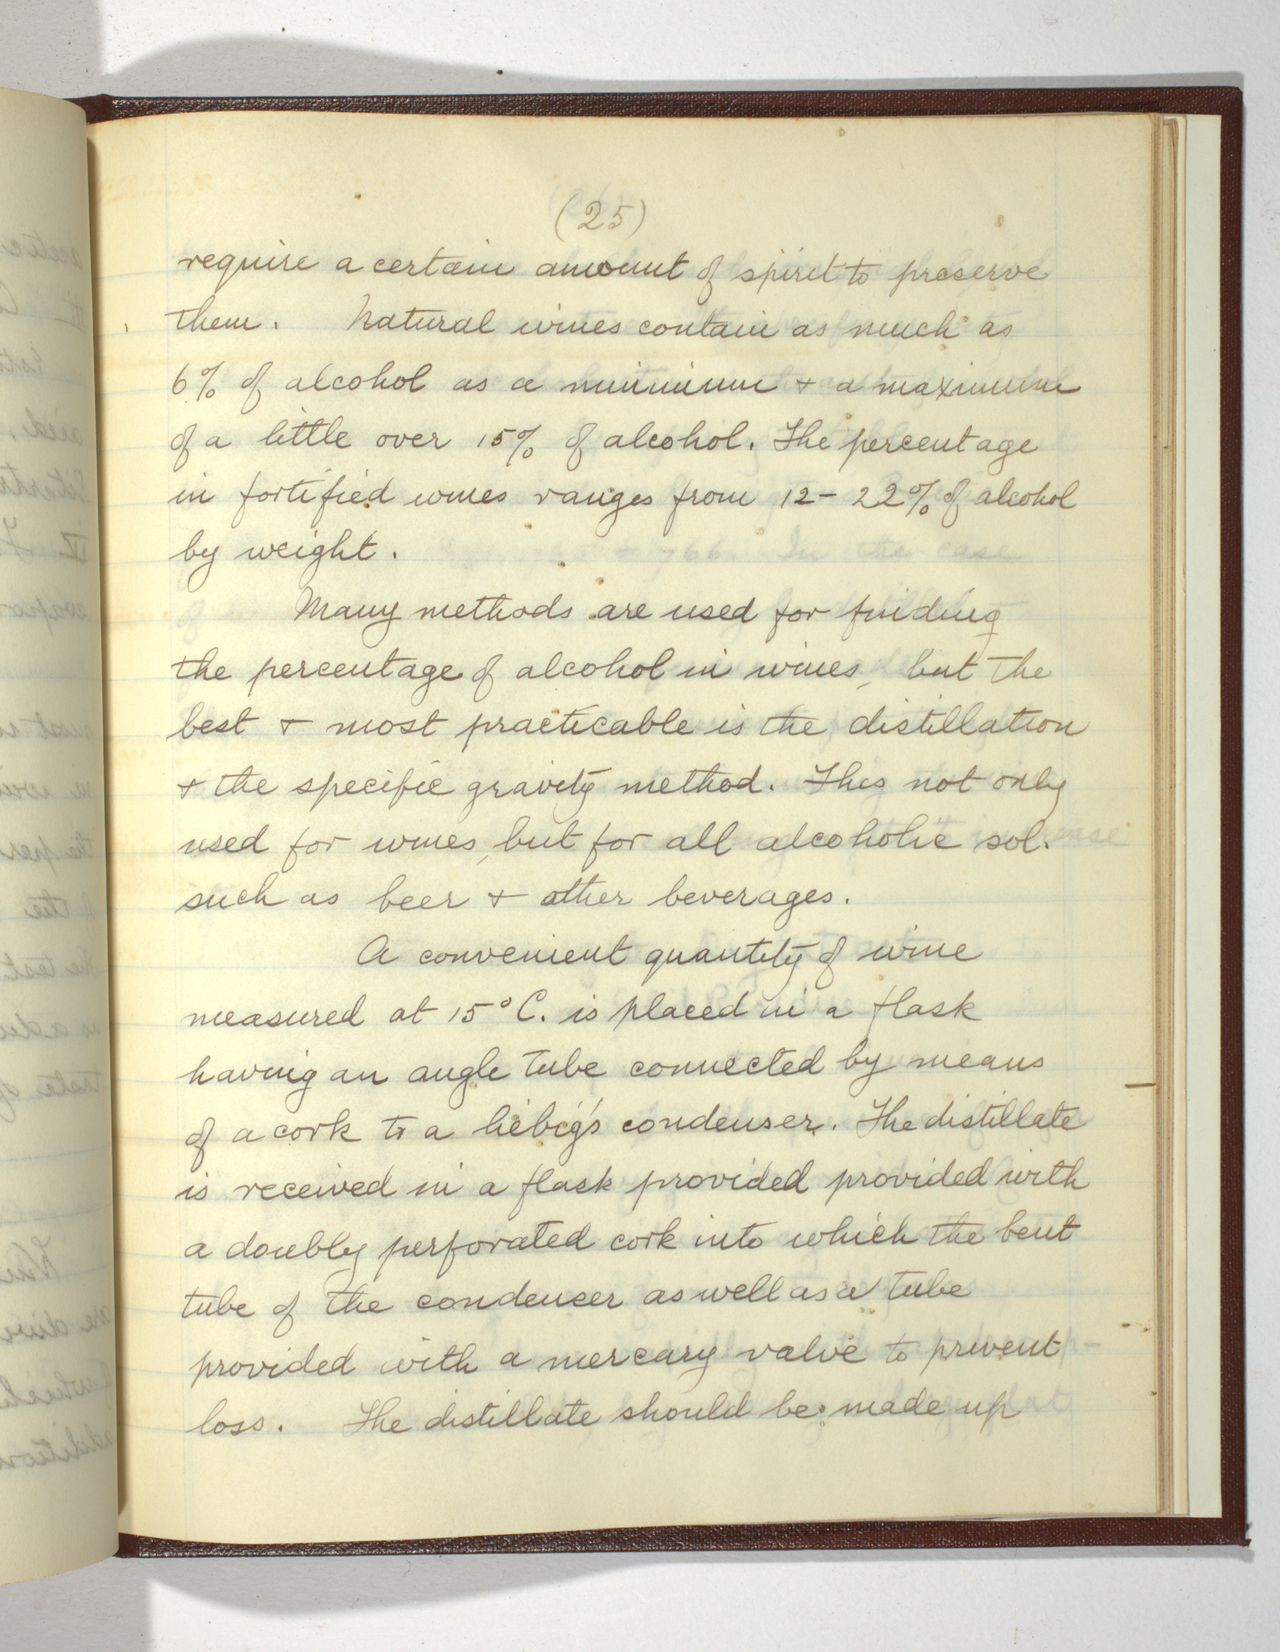 (25)
require a certain amount of spirit to preserve
them. Natural wines contain as much as
6% of alcohol as a minimum + a maximum
of a little over 15% of alcohol. The percentage
in fortified wines ranges from 12-22% of alcohol
by weight.
Many methods are used for finding
the percentage of alcohol in wines, but the
best + most practicable is the distillation
+ the specific gravity method. This not only
used for wines, but for all alcoholic sol.
such as beer + other beverages.
A convenient quantity of wine
measured at 15°C. is placed in a flask
having an angle tube connected by means
of a cork to a liebig's condenser. The distillate
is received in a flask provided provided with
a doubly perforated cork into which the bent
tube of the condenser as well as a tube
provided with a mercary valve to prevent
loss. The distillate should be made up